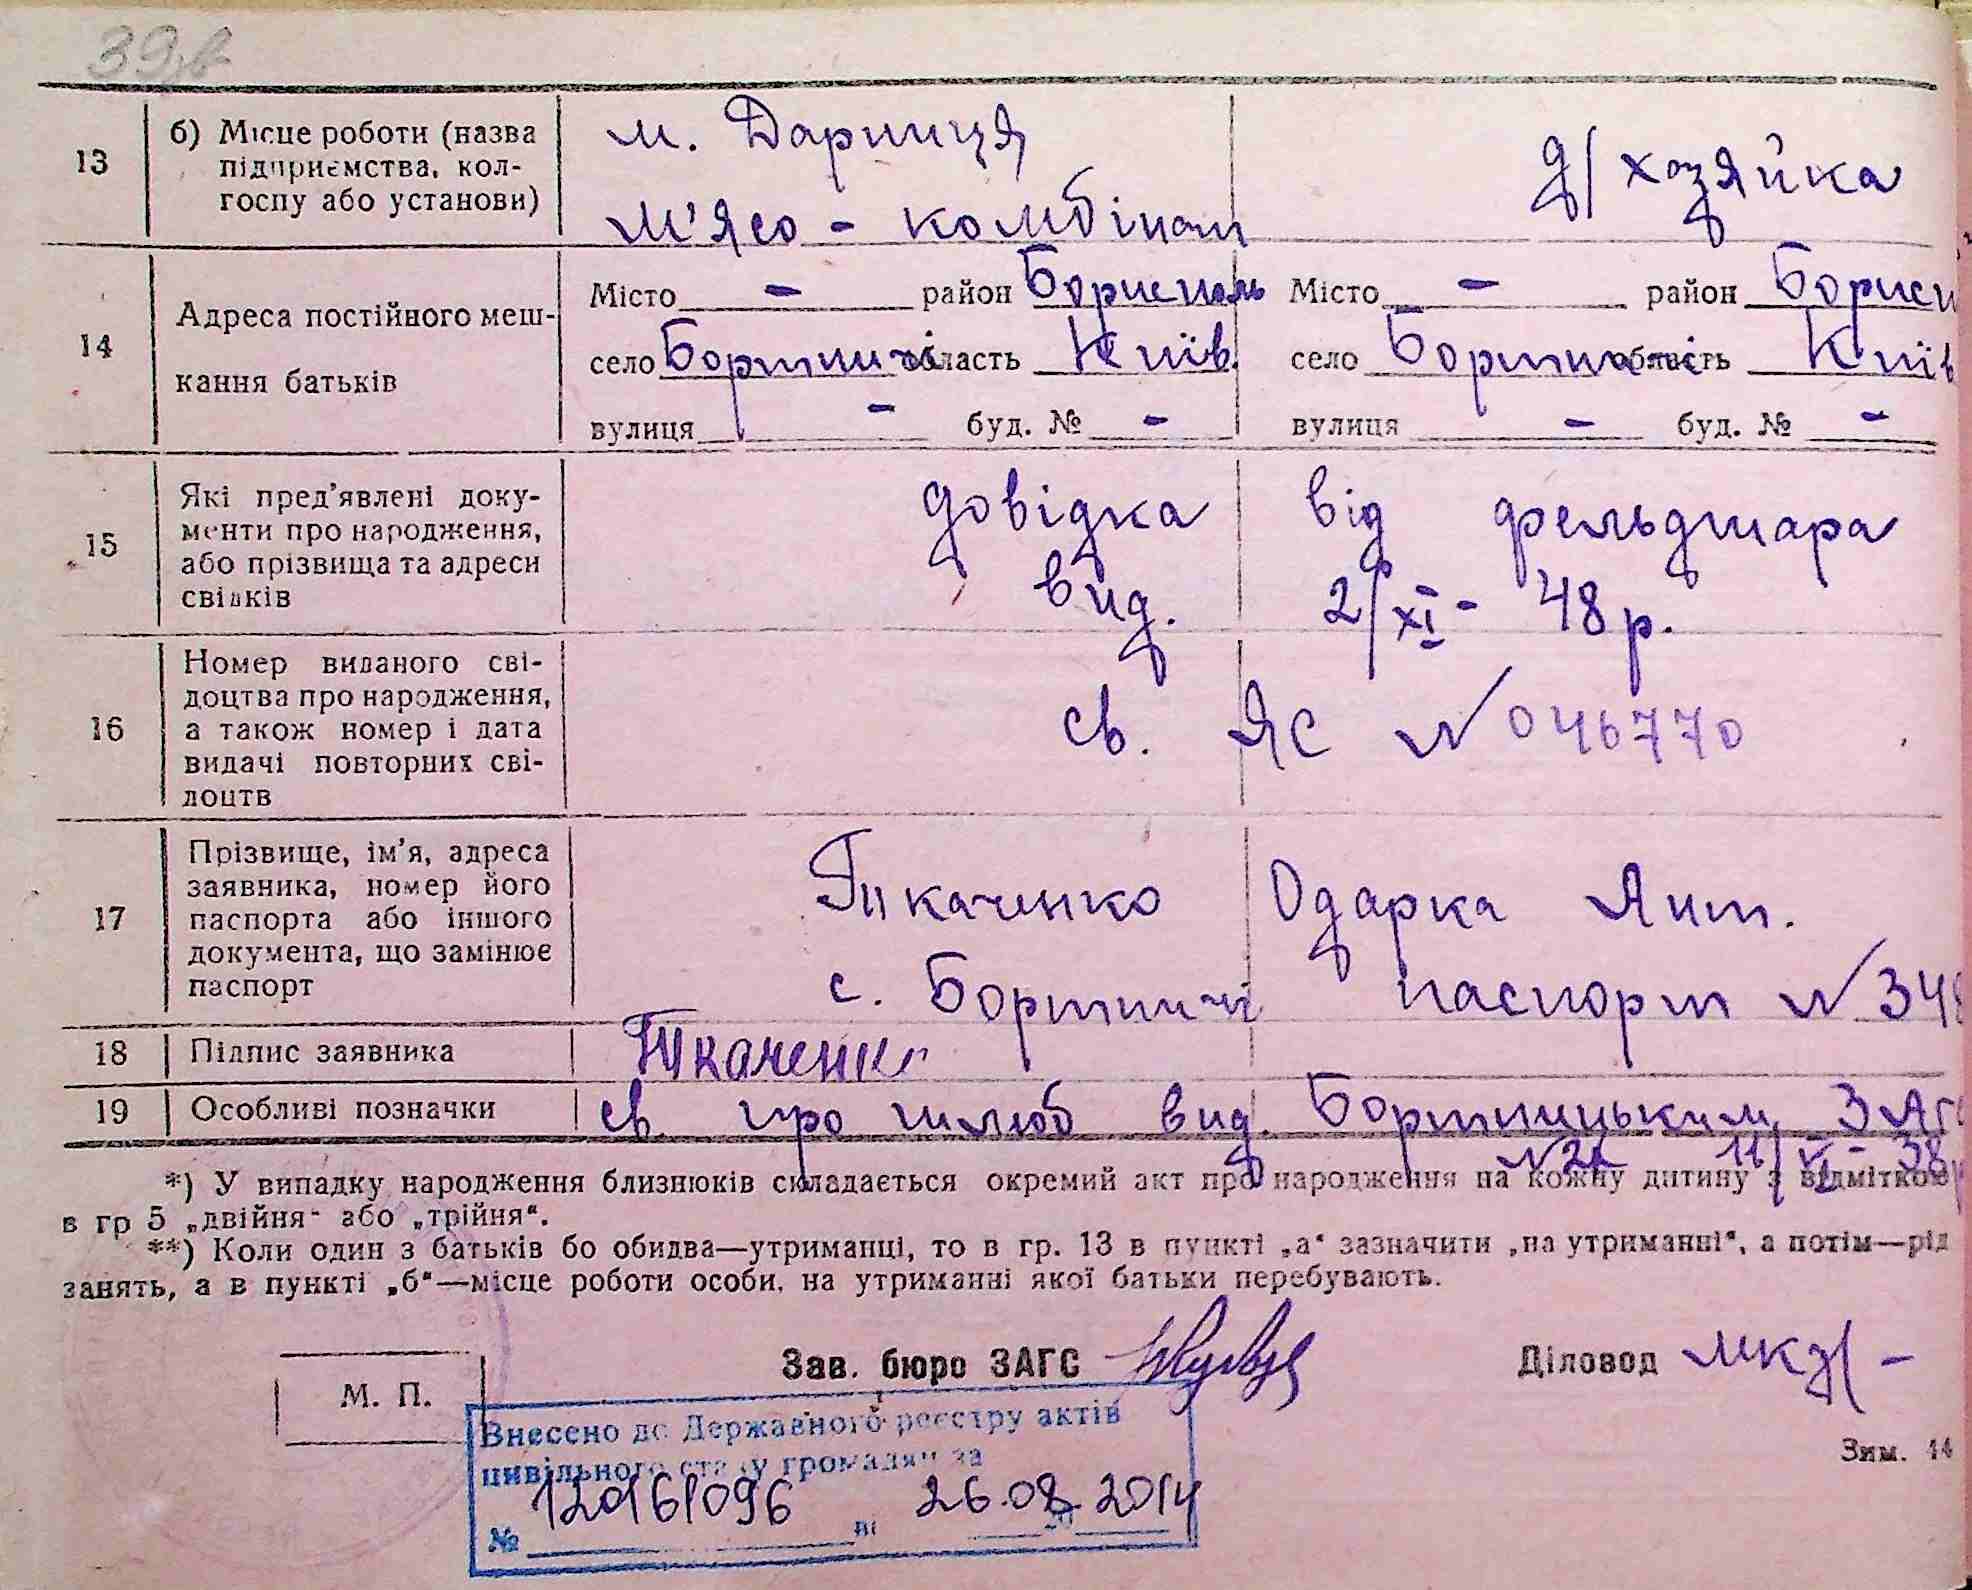 39зв
13
б) Місце роботи (назва
підприємства, кол-
госпу або установи)
м. Дарниця
м'ясо - комбінат
д/хозяйка
14
Адреса постійного меш-
кання батьків
Місто - район Бориспіль
село Бортничі область Київ.
вулиця - буд. № -
Місто - район Борисп
село Бортничі область Київ
вулиця - буд. № -
15
Які пред'явлені доку-
менти про народження,
або прізвища та адреси
свідків
довідка від фельдшара
вид. 2/XI - 48 р.
16
Номер виданого сві-
доцтва про народження,
а також номер і дата
видачі повторних сві-
доцтв
св. ЯС № 046770
17
Прізвище, ім'я, адреса
заявника, номер його
паспорта або іншого
документа, що замінює
паспорт
Ткаченко Одарка Ант.
с. Бортничі паспорт № 348
18
Підпис заявника
Ткаченк
19
Особливі позначки
св. про шлюб вид. Бортницьким ЗАГС
№ 22 11/VI - 38р
*) У випадку народження близнюків складається окремий акт про народження на кожну дитину з відміткою
в гр 5 „двійня" або „трійня".
**) Коли один з батьків бо обидва—утриманці, то в гр. 13 в пункті „а" зазначити „на утриманні", а потім—рід
занять, а в пункті „б"—місце роботи особи, на утриманні якої батьки перебувають.
Зав. бюро ЗАГС
Діловод
М. П.
Внесено до Державного реєстру актів
цивільного стану громадян за
№ 120161096 ві 26.08.2014
Зим. 44